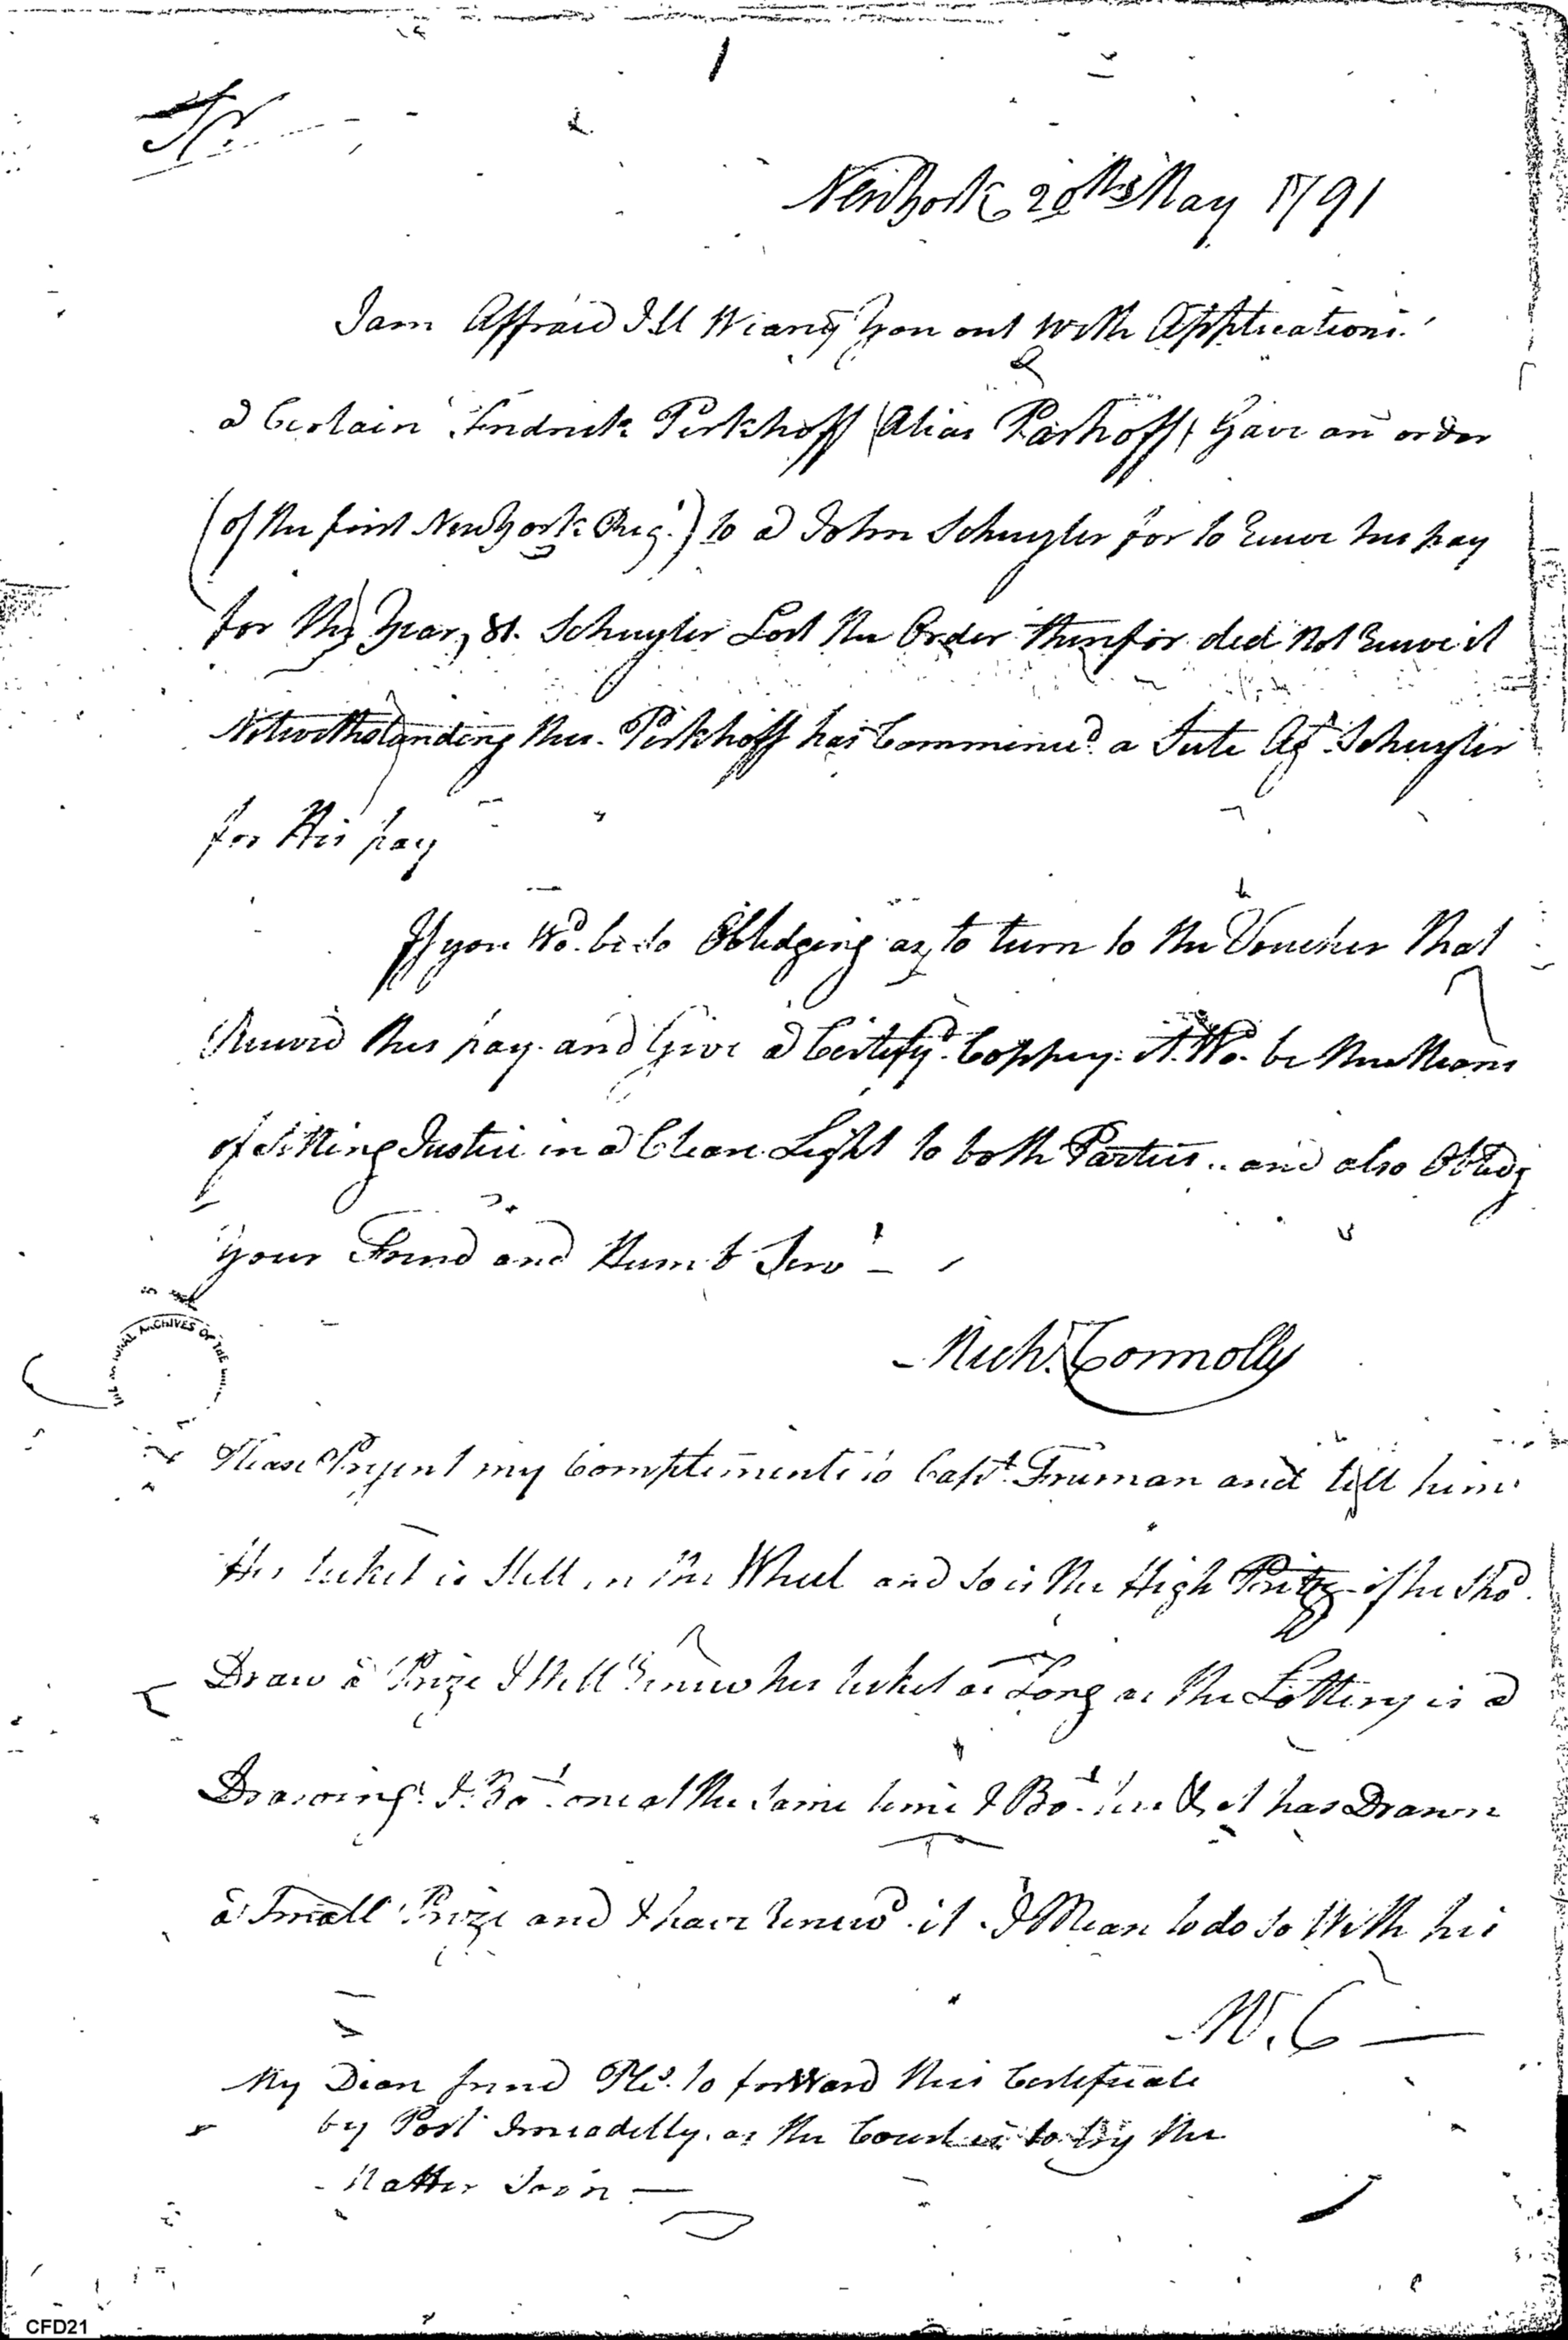 Sr.
New York 20th May 1791
I am Affraid I'll Weary You out with Applications.
a Certain Fredrick Perkhoff (Alias Parkhoff) Gave an order
(of the first New York Reg.t) to a John Schuyler for to Receive his pay
for the Year, 81. Schuyler Lost the Order therefor did Not Receive it
Notwithstanding this. Perkhoff has Commenced a Sute Agt. Schuyler
for His pay
If you Wd. be so Obledging as to turn to the Voucher that
Received this pay and Give a Certifyd. Coppey. it Wd. be the Means
of Setting Justice in a Clear Light to both Parties .. and also Obledg
your Friend and Humb Servt
Nichs. Connolly
Please Present my Complements to Capt. Freeman and tell him
His ticket is Still in the Wheel and so is the High Prize if he Shd.
Draw a Prize I Will Renew his ticket as Long as the Lottery is a
Drawing. I Bot. one at the same time I Bot. his & it has Drawn
a Small Prize and I have Renewd. it. I Mean to do so With his
N. C
My Dear frend Pls. to forward this Certificate
by Post Imeadetly. as the Court is to try the
Matter Soon
THE NATIONAL ARCHIVES OF THE
CFD21